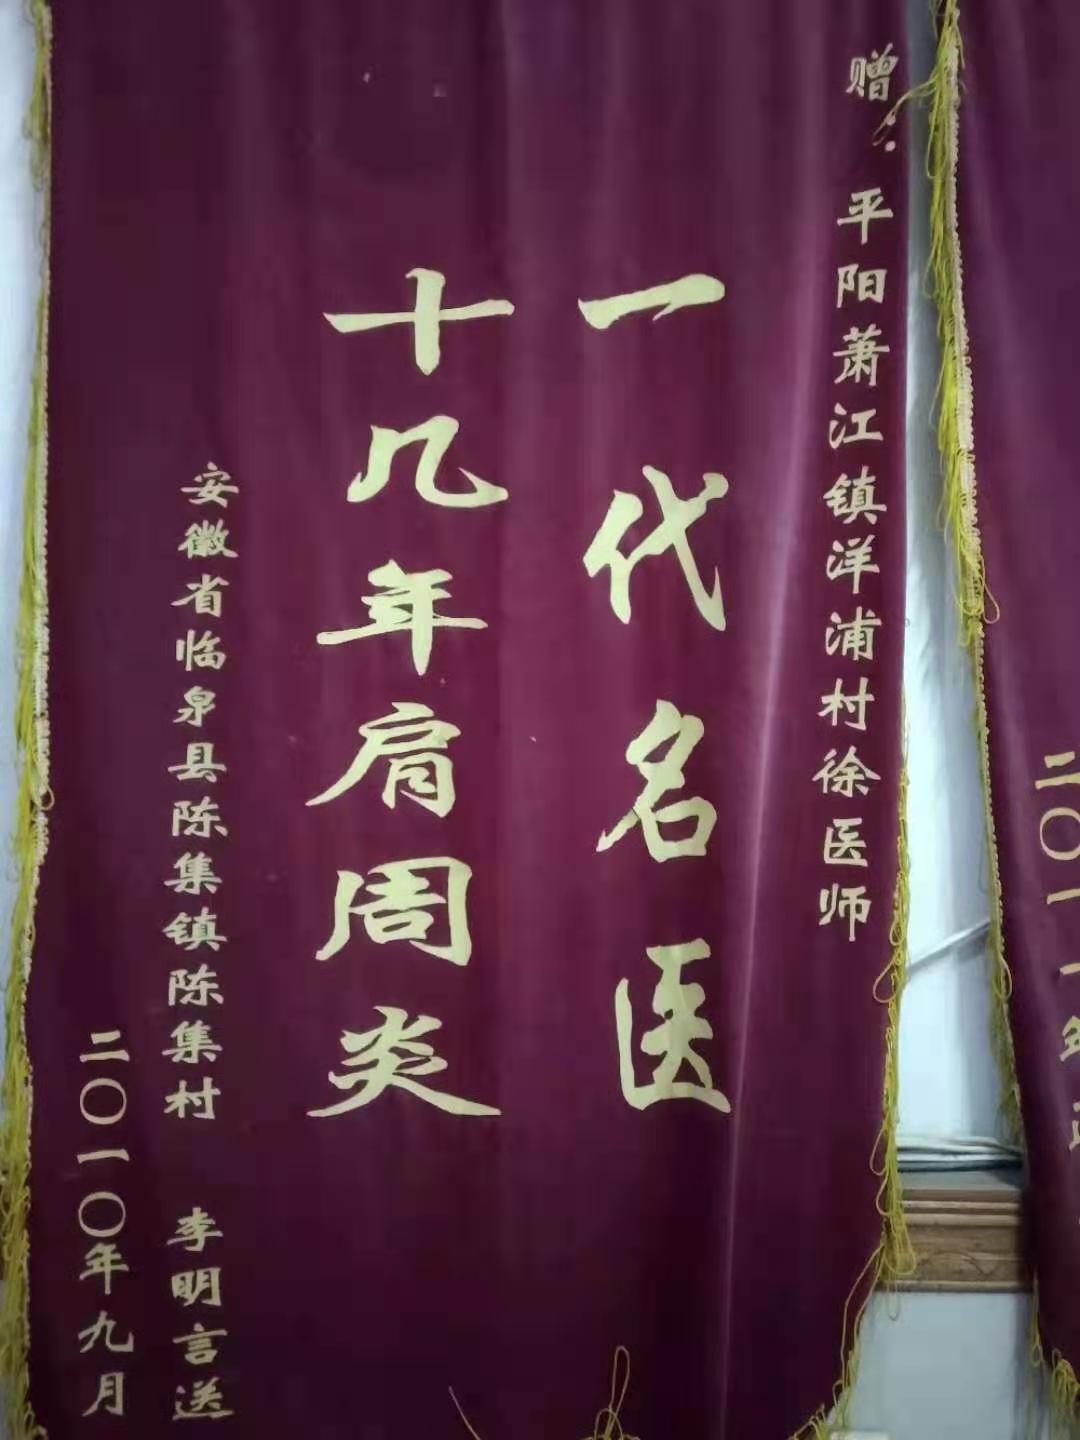 赠：平阳萧江镇洋浦村徐医师
一代名医
十几年肩周炎
安徽省临泉县陈集镇陈集村 李明言送
二〇一〇年九月
二〇一一年